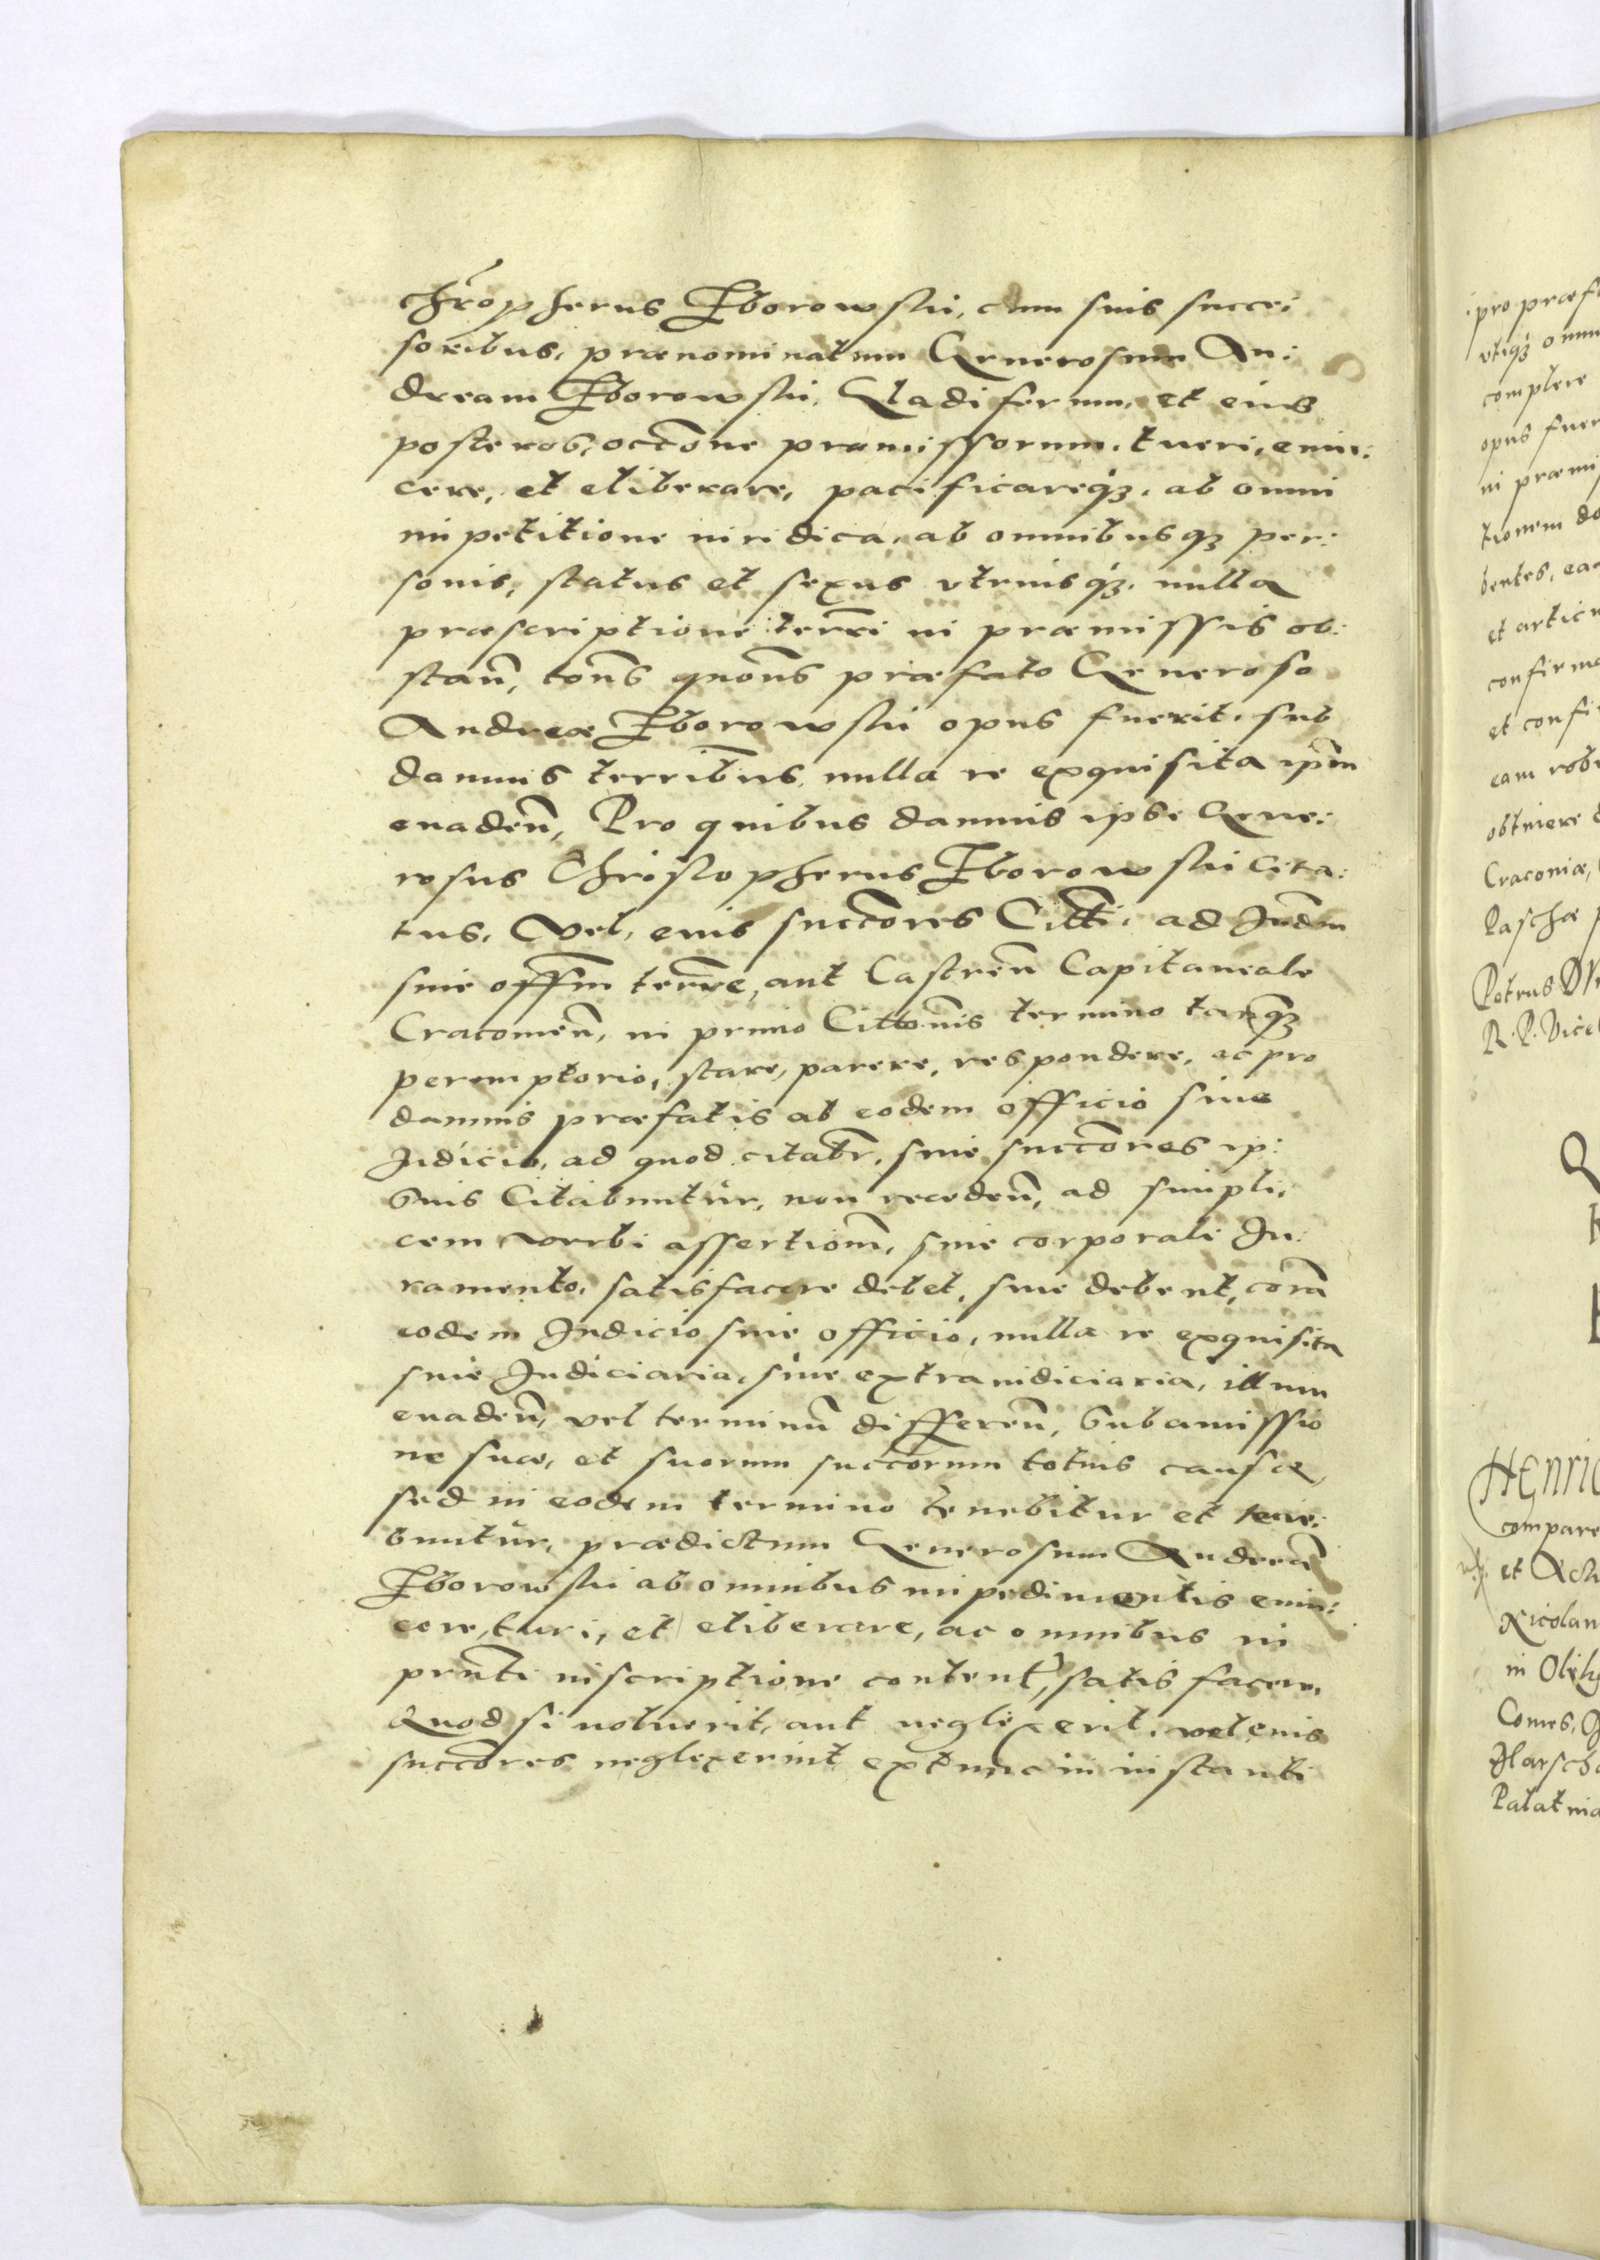 chr̃opherus Zborowskii, cum suis succes:
soribus, prænominatum Generosum An:
dream Zborowskii, Gladiferum, et eius
posteros, occ̃one præmissorum, tueri, euin:
cere, et eliberare, pacificareq́3, ab omni
impetitione iuridica, ab omnibusq3 per:
sonis, status et sexus vtriusq́3, nulla
præscriptione terr̃i in præmissis ob:
stañ, tot̃ns quot̃ns præfato Generoso
Andreæ Zborowskii opus fuerit, sub
damnis terrib̃us, nulla re exquisita ip̃m
euadeñ, Pro quibus damnis ipse Gene:
rosus Christopherus Zborowskii Cita:
tus, Vel, eius succ̃ores Citt̃i, ad Iud̃m
siue off̃m terr̃e, aut Castreñ Capitaneale
Cracouieñ, in primo Citto̅nis termino tanq̃3
peremptorio, stare, parere, respondere, ac pro
damnis præfatis ab eodem officio siue
Iudicio, ad quod citabr̃, siue succ̃ores ip:
sius Citabuntur, non recedeñ, ad simpli:
cem verbi assertiom̃, siue corporali Iu:
ramento, satisfacere debet, siue debent, corã
eodem Iudicio siue officio, nulla re exquisita
siue Iudiciaria, siue extraiudiciaria, illum
euadeñ, vel terminũ differeñ, sub amissio
ne suæ, et suorum succ̃orum totius causæ,
sed in eodem termino tenebitur et tene:
buntur, prædictum Generosum Andreã
Zborowskii ab omnibus impedimentis euin:
cere, turi, et eliberare, ac omnibus in
prñti inscriptione content̃, satisfacere,
Quod si noluerit, aut neglexerit, vel eius
succ̃ores neglexerint extunc in instanti
pro præf
vtiq́3 omni
complere
opus fuer
in præmi
tionem do
bentes, ea
et articu
confirma
et confi
eam rob
obtinere
Cracouiæ,
Paschæ
Petrus
R. P. Vice
HENRIC
compare
et Acti
Nicolau
in Olik
Comes,
Marscha
Palatina